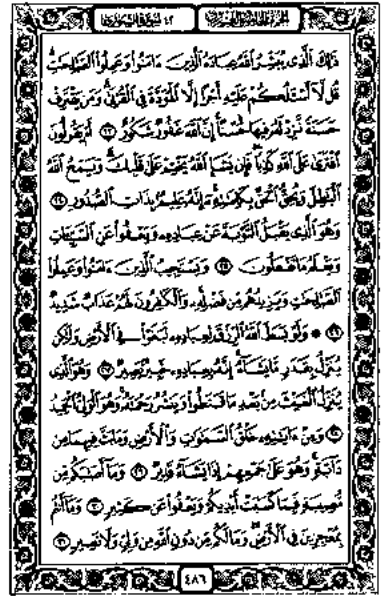 الجزء الخامس والعشرون
٤٢ سورة الشورى
ذَٰلِكَ ٱلَّذِى يُبَشِّرُ ٱللَّهُ عِبَادَهُ ٱلَّذِينَ ءَامَنُوا۟ وَعَمِلُوا۟ ٱلصَّٰلِحَٰتِ
قُل لَّآ أَسْـَٔلُكُمْ عَلَيْهِ أَجْرًا إِلَّا ٱلْمَوَدَّةَ فِى ٱلْقُرْبَىٰ وَمَن يَقْتَرِفْ
حَسَنَةً نَّزِدْ لَهُۥ فِيهَا حُسْنًا إِنَّ ٱللَّهَ غَفُورٌ شَكُورٌ ٢٣ أَمْ يَقُولُونَ
ٱفْتَرَىٰ عَلَى ٱللَّهِ كَذِبًا فَإِن يَشَإِ ٱللَّهُ يَخْتِمْ عَلَىٰ قَلْبِكَ وَيَمْحُ ٱللَّهُ
ٱلْبَٰطِلَ وَيُحِقُّ ٱلْحَقَّ بِكَلِمَٰتِهِۦٓ إِنَّهُۥ عَلِيمٌۢ بِذَاتِ ٱلصُّدُورِ ٢٤
وَهُوَ ٱلَّذِى يَقْبَلُ ٱلتَّوْبَةَ عَنْ عِبَادِهِۦ وَيَعْفُوا۟ عَنِ ٱلسَّيِّـَٔاتِ
وَيَعْلَمُ مَا تَفْعَلُونَ ٢٥ وَيَسْتَجِيبُ ٱلَّذِينَ ءَامَنُوا۟ وَعَمِلُوا۟
ٱلصَّٰلِحَٰتِ وَيَزِيدُهُم مِّن فَضْلِهِۦ وَٱلْكَٰفِرُونَ لَهُمْ عَذَابٌ شَدِيدٌ
٢٦ ۞ وَلَوْ بَسَطَ ٱللَّهُ ٱلرِّزْقَ لِعِبَادِهِۦ لَبَغَوْا۟ فِى ٱلْأَرْضِ وَلَٰكِن
يُنَزِّلُ بِقَدَرٍ مَّا يَشَآءُ إِنَّهُۥ بِعِبَادِهِۦ خَبِيرٌۢ بَصِيرٌ ٢٧ وَهُوَ ٱلَّذِى
يُنَزِّلُ ٱلْغَيْثَ مِنۢ بَعْدِ مَا قَنَطُوا۟ وَيَنشُرُ رَحْمَتَهُۥ وَهُوَ ٱلْوَلِىُّ ٱلْحَمِيدُ
٢٨ وَمِنْ ءَايَٰتِهِۦ خَلْقُ ٱلسَّمَٰوَٰتِ وَٱلْأَرْضِ وَمَا بَثَّ فِيهِمَا مِن
دَآبَّةٍ وَهُوَ عَلَىٰ جَمْعِهِمْ إِذَا يَشَآءُ قَدِيرٌ ٢٩ وَمَآ أَصَٰبَكُم مِّن
مُّصِيبَةٍ فَبِمَا كَسَبَتْ أَيْدِيكُمْ وَيَعْفُوا۟ عَن كَثِيرٍ ٣٠ وَمَآ أَنتُم
بِمُعْجِزِينَ فِى ٱلْأَرْضِ وَمَا لَكُم مِّن دُونِ ٱللَّهِ مِن وَلِىٍّ وَلَا نَصِيرٍ ٣١
٤٨٦